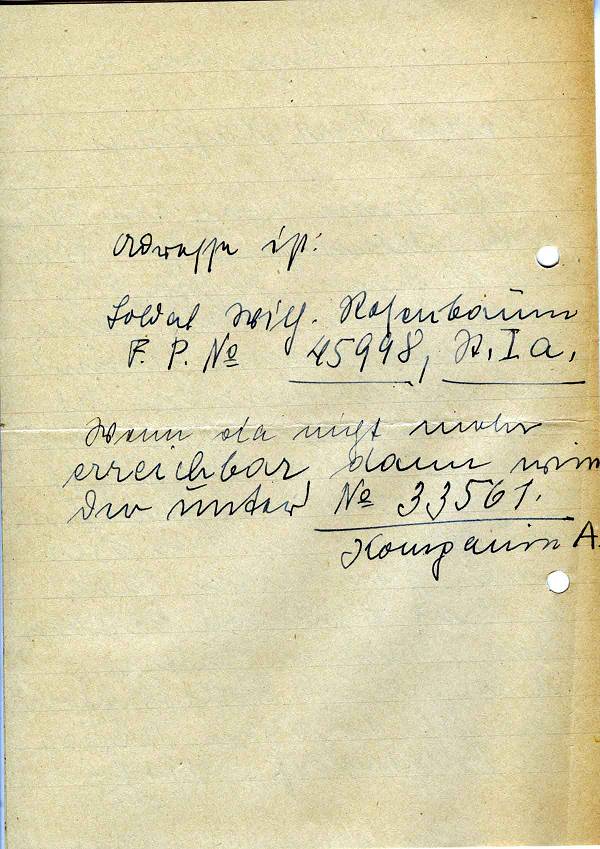 Adresse ist:
Soldat Wilh. Rosenbaum
F. P. No 45998, A. I a.
Wenn da nicht mehr
erreichbar, dann wie
der unter No 33561.
Kompanie A.